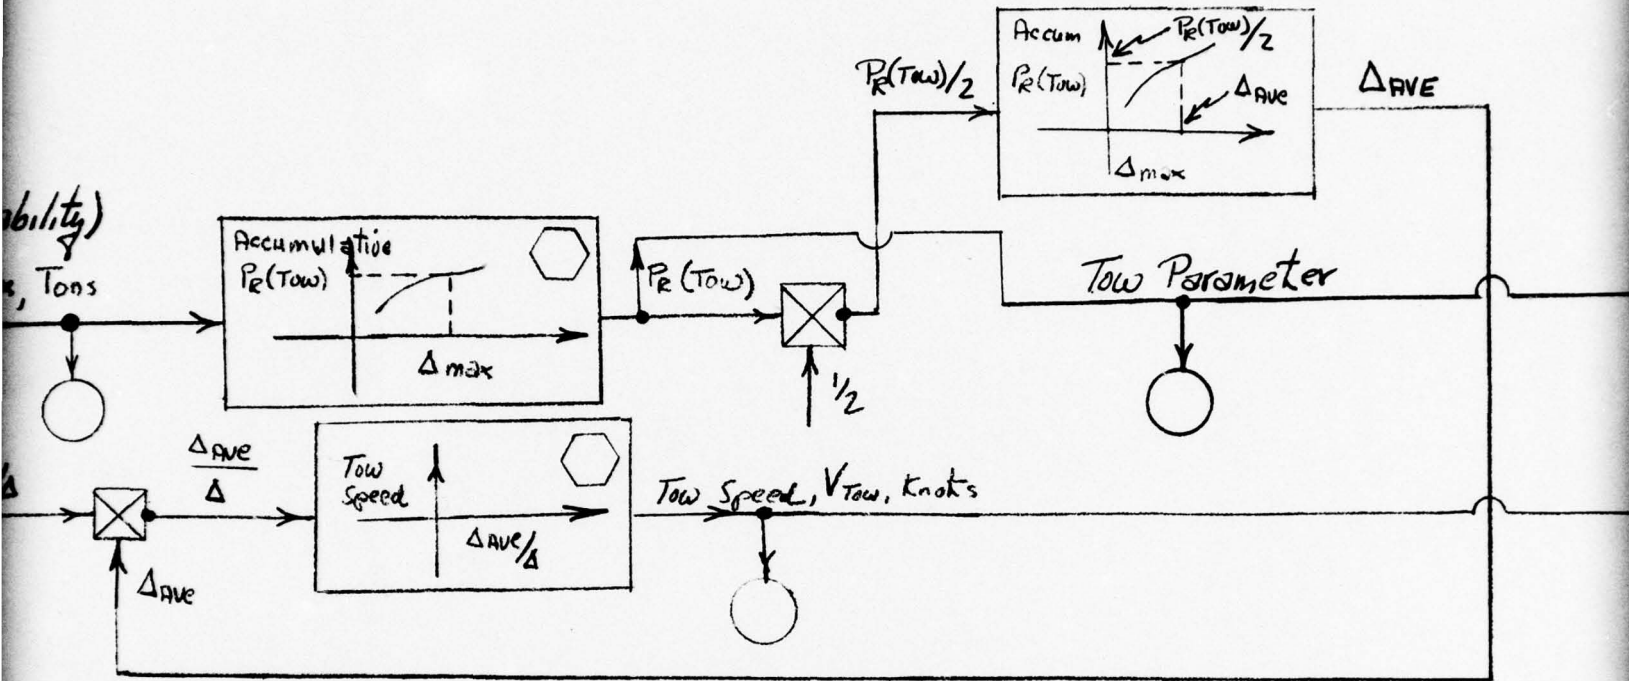 Accum
PR(Tow)/2
PR(Tow)
ΔAVE
Δmax
PR(Tow)/2
ΔAVE
Tons
Accumulative
PR(Tow)
Δmax
PR(Tow)
1/2
Tow Parameter
ΔAVE
Δ
Tow
Speed
ΔAVE/Δ
Tow Speed, VTow, Knots
ΔAVE